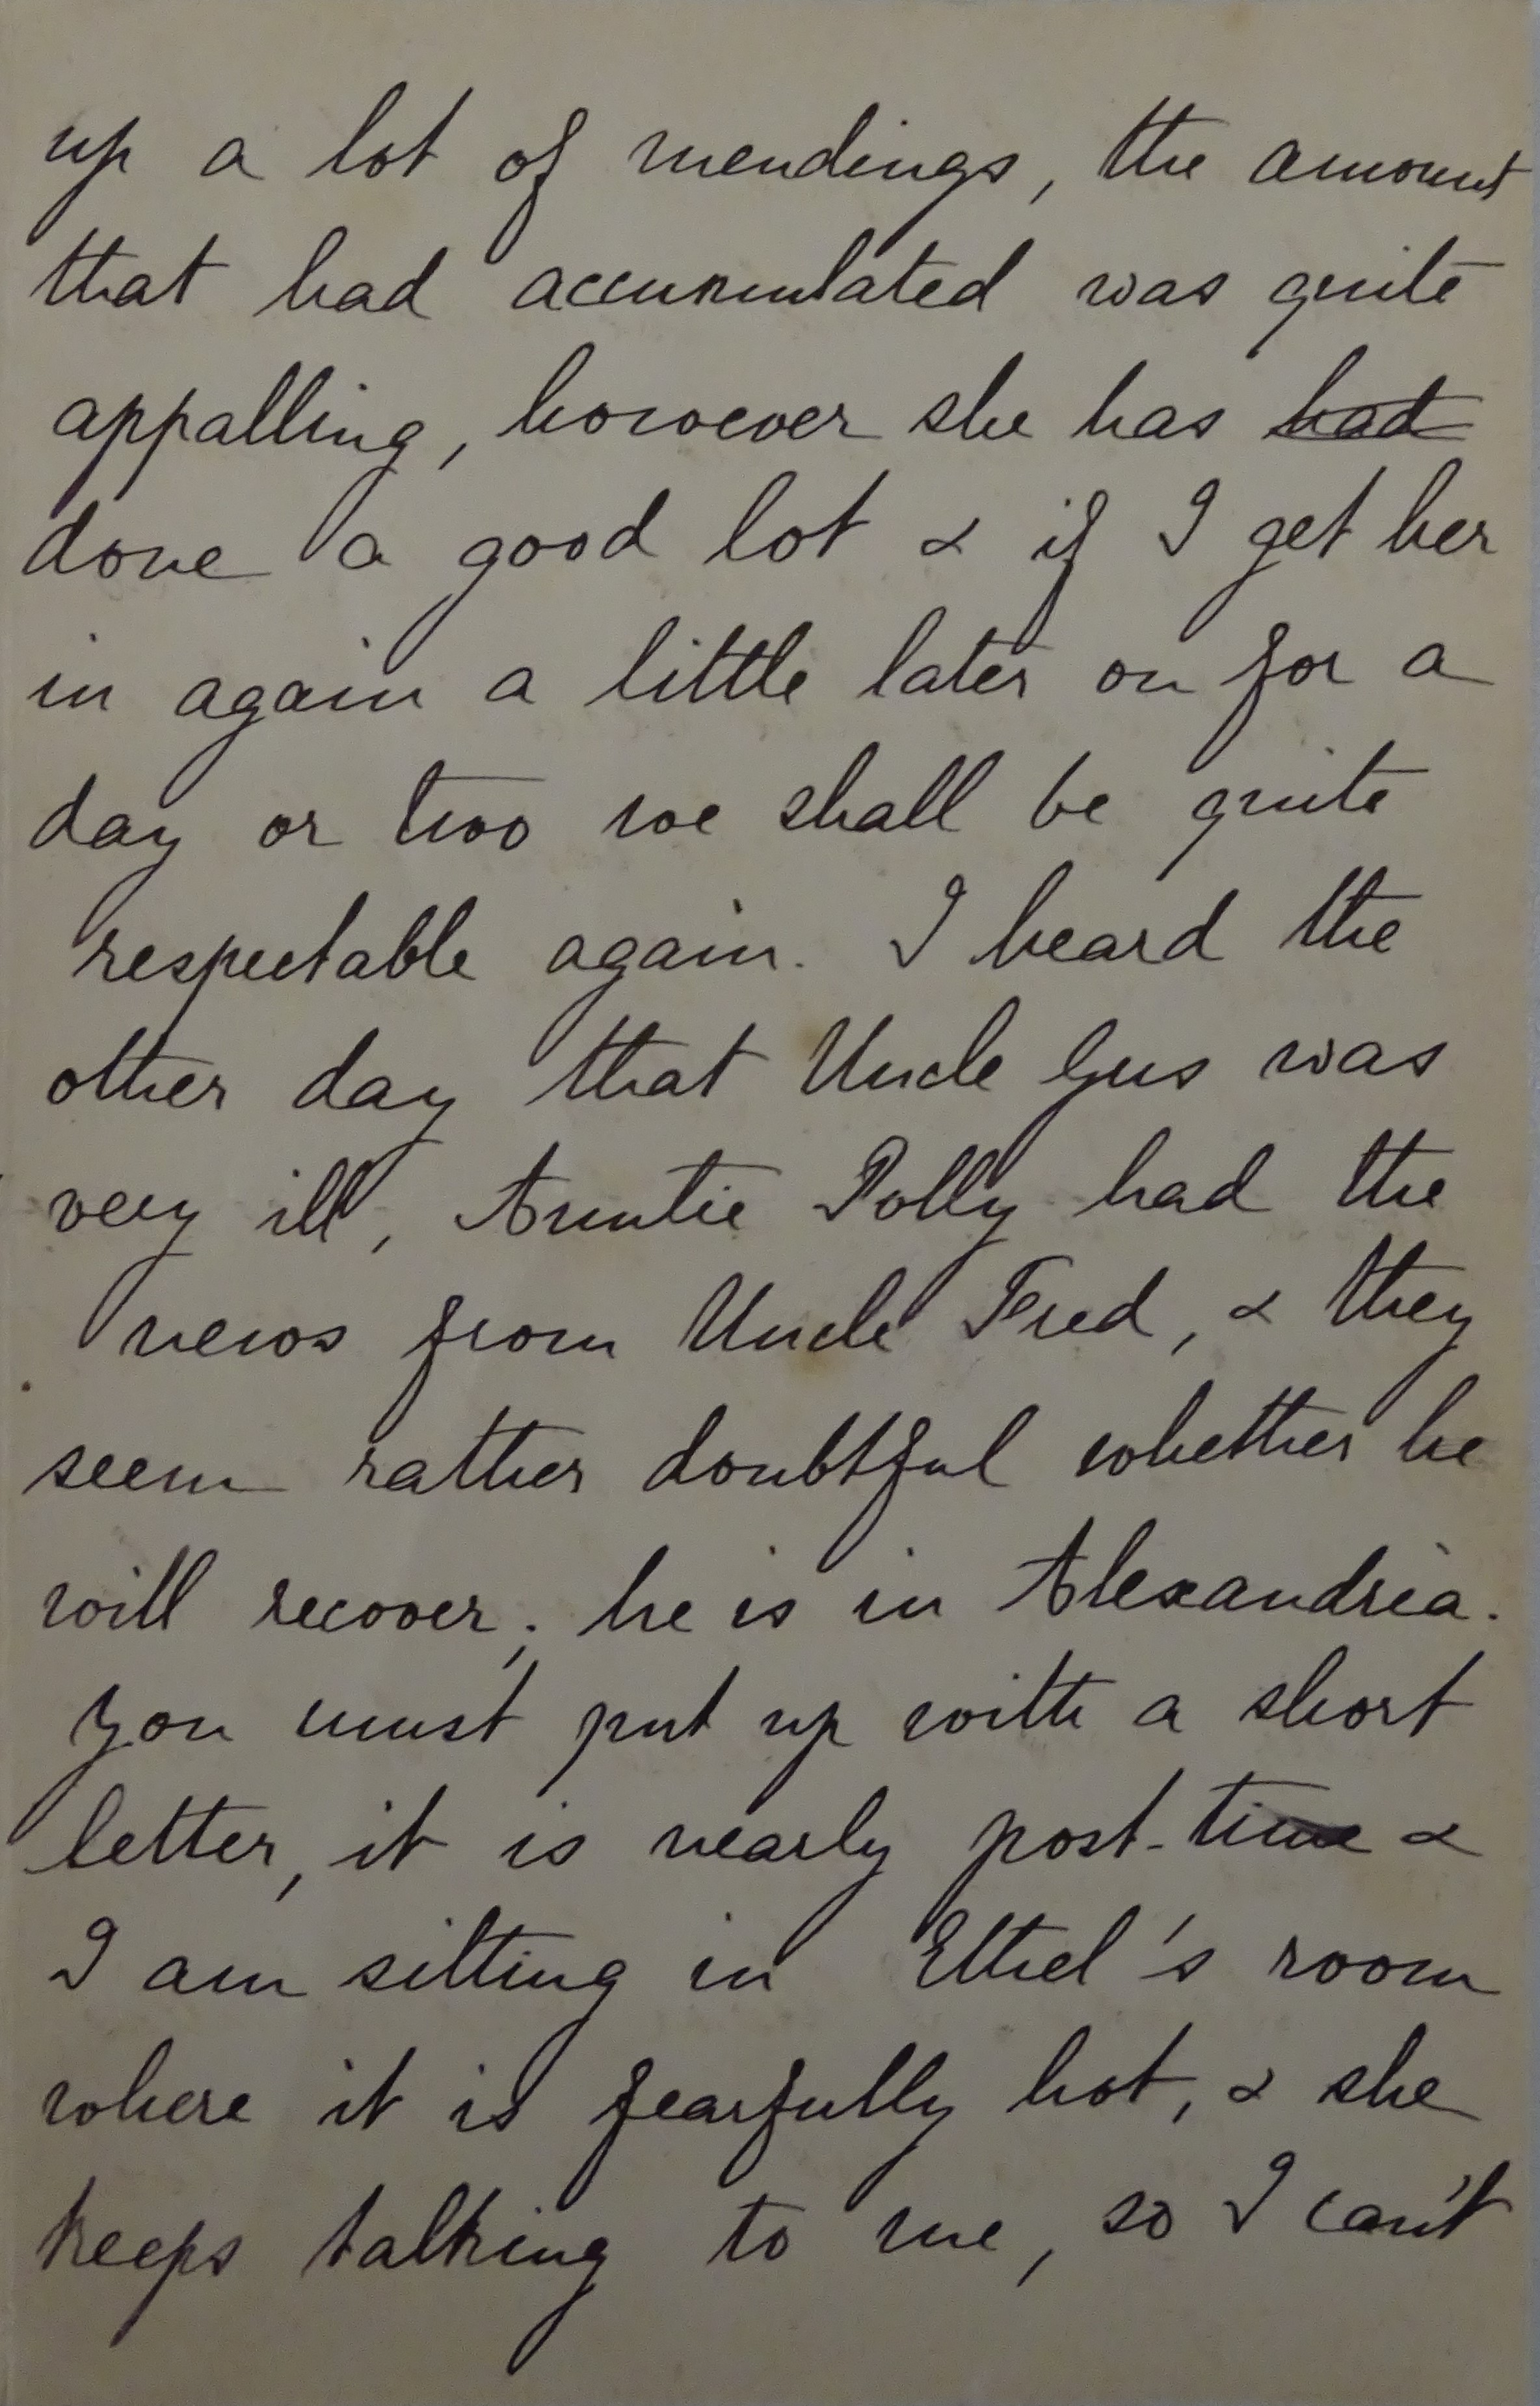 up a lot of mendings, the amount
that had accumulated was quite
appalling, however she has had
done a good lot & if I get her
in again a little later on for a
day or two we shall be quite
respectable again. I heard the
other day that Uncle Gus was
very ill, Auntie Polly had the
news from Uncle Fred, & they
seem rather doubtful whether he
will recover; he is in Alexandria.
You must put up with a short
letter, it is nearly post-time &
I am sitting in Ethel's room
where it is fearfully hot, & she
keeps talking to me, so I can't